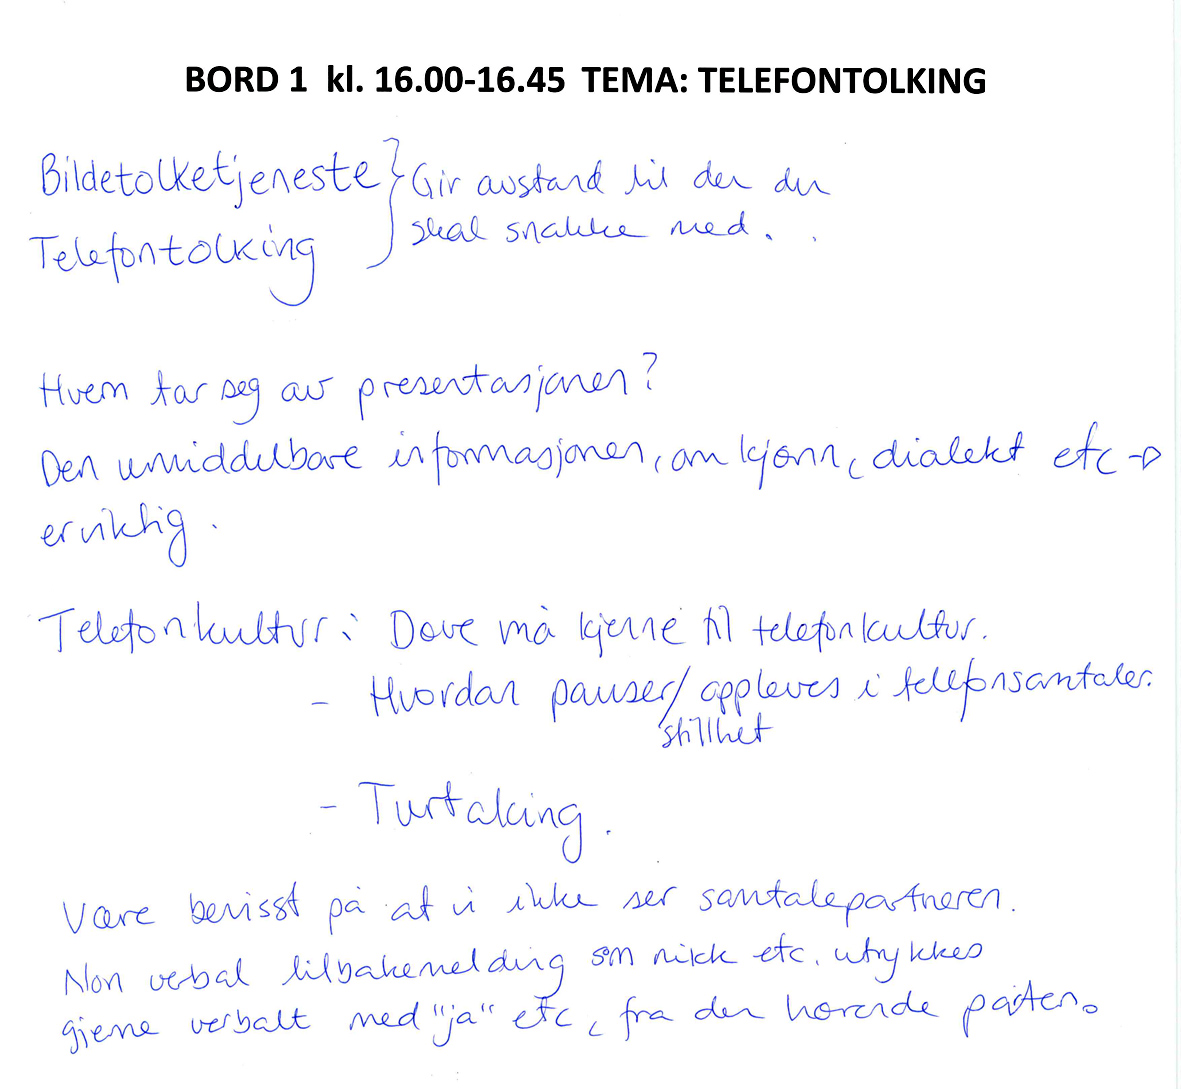 BORD 1 kl. 16.00-16.45 TEMA: TELEFONTOLKING
Bildetolketjeneste } Gir avstand til den du
Telefontolking skal snakke med.
Hvem tar seg av presentasjonen?
Den umiddelbare informasjonen, om kjønn, dialekt etc →
er viktig.
Telefonkultur: Døve må kjenne til telefonkultur.
- Hvordan pauser/ oppleves i telefonsamtaler.
stillhet
- Turtaking.
Være bevisst på at vi ikke ser samtalepartneren.
Non verbal tilbakemelding som nikk etc. utrykkes
gjerne verbalt med "ja" etc, fra den hørende parten.